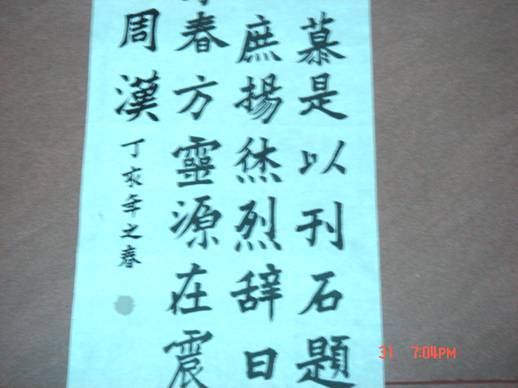 慕是以刊石題
庶揚烋烈辭曰
春方靈源在震
周漢
丁亥年之春
31 7:04PM